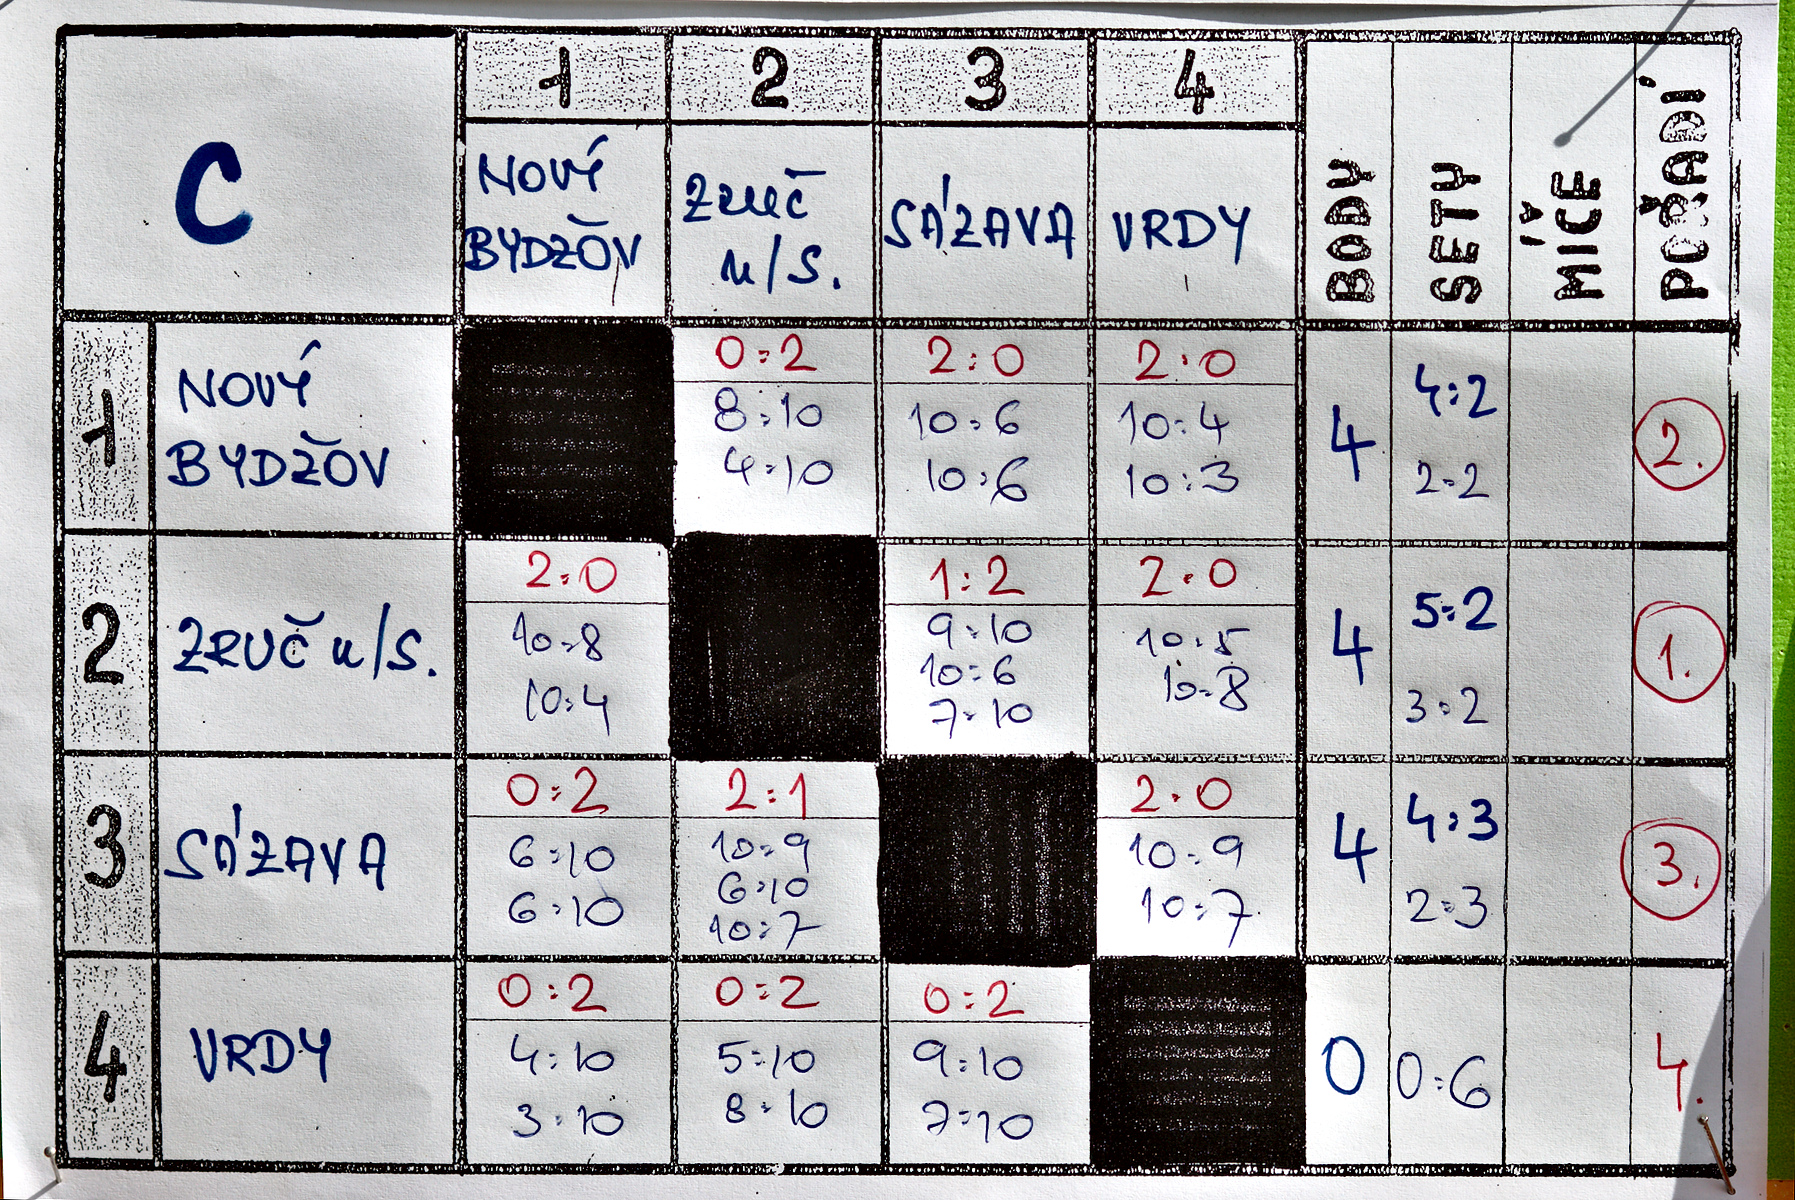 C
1 2 3 4
NOVÝ BYDŽOV
ZRUČ u/S.
SÁZAVA
VRDY
BODY
SETY
MÍČE
POŘADÍ
1 NOVÝ BYDŽOV
0:2 2:0 2:0
8:10 10:6 10:4
4:10 10:6 10:3
4
4:2
2:2
2.
2 ZRUČ u/S.
2:0 1:2 2:0
10:8 9:10 10:5
10:4 10:6 10:8
7:10
4
5:2
3:2
1.
3 SÁZAVA
0:2 2:1 2:0
6:10 10:9 10:9
6:10 6:10 10:7
10:7
4
4:3
2:3
3.
4 VRDY
0:2 0:2 0:2
4:10 5:10 9:10
3:10 8:10 7:10
0
0:6
4.